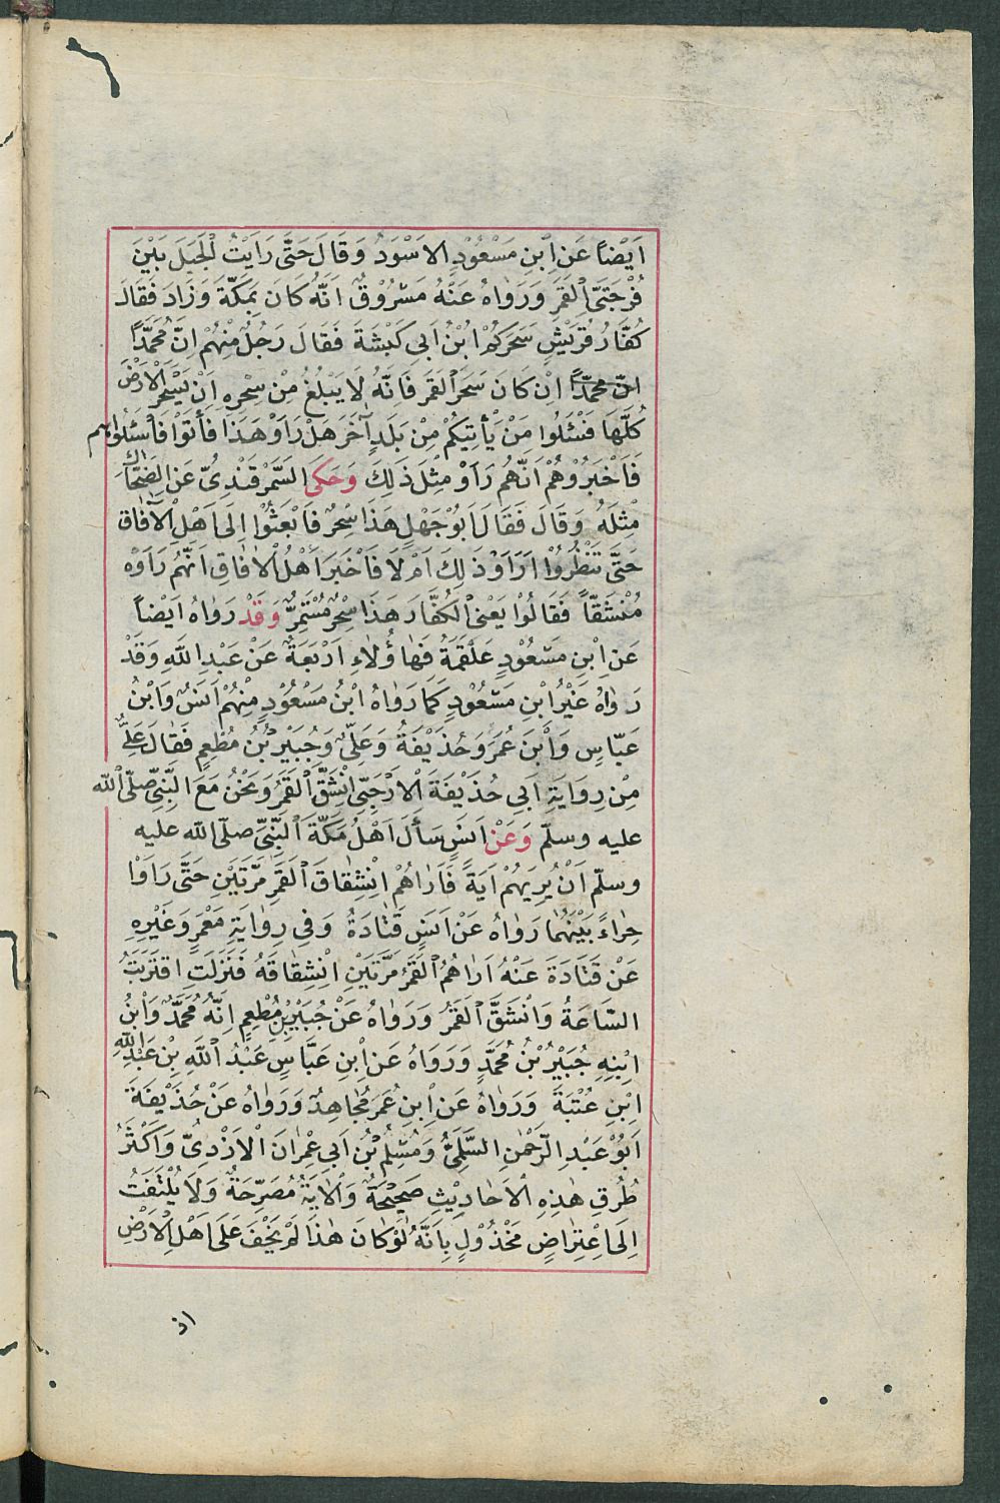 اَيْضاً عَنِ ابْنِ مَسْعُوْدٍ الاَسْوَدُ وَقَالَ حَتَّى رَاَيْتُ الْجَبَلَ بَيْنَ
فُرْجَتَىِ الْقَمَرِ وَرَوَاهُ عَنْهُ مَسْرُوْقٌ اَنَّهُ كَانَ بِمَكَّةَ وَزَادَ فَقَالَ
كُفَّارُ قُرَيْشٍ سَحَرَكُمْ ابْنُ اَبِى كَبْشَةَ فَقَالَ رَجُلٌ مِنْهُمْ اِنَّ مُحَمَّداً
انّ محمدًا اِنْ كَانَ سَحَرَ الْقَمَرَ فَاِنَّهُ لَا يَبْلُغُ مِنْ سِحْرِهِ اَنْ يَسْحَرَ الْاَرْضَ
كُلَّهَا فَسْئَلُوا مَنْ يَأْتِيكُمْ مِنْ بَلَدٍ آخَرَ هَلْ رَاَوْ هَذَا فَأَتَوْا فَأَسْئَلُوا بهم
فَاَخْبَرُوْهُمْ اَنَّهُمْ رَاَوْ مِثْلَ ذٰلِكَ وَحَكَى السَّمَرْقَنْدِىُّ عَنِ الضَّحَّاكِ
مِثْلَهُ وَقَالَ فَقَالَ اَبُوْ جَهْلٍ هَذَا سِحْرٌ فَابْعَثُوْا اِلَى اَهْلِ الْآفَاقِ
حَتَّى تَنْظُرُوْا اَرَاَوْ ذَلِكَ اَمْ لَا فَاَخْبَرَ اَهْلُ الْاٰفَاقِ اَنَّهُمْ رَاَوْهُ
مُنْشَقّاً فَقَالُوْا يَعْنِى الْكُفَّارَ هَذَا سِحْرٌ مُسْتَمِرٌّ وَقَدْ رَوَاهُ اَيْضاً
عَنِ ابْنِ مَسْعُوْدٍ عَلْقَمَةُ فَهٰاؤُلَاءِ اَرْبَعَةٌ عَنْ عَبْدِ اللّٰهِ وَقَدْ
رَوَاهُ غَيْرُ ابْنِ مَسْعُوْدٍ كَمَا رَوَاهُ ابْنُ مَسْعُوْدٍ مِنْهُمْ اَنَسٌ وَابْنُ
عَبَّاسٍ وَابْنَ عُمَرَ وَحُذَيْفَةُ وَعَلِىٌّ وَجُبَيْرُ بْنُ مُطْعِمٍ فَقَالَ عَلِىٌّ
مِنْ رِوَايَةِ اَبِى حُذَيْفَةَ الْاَرْحَبِىِّ انْشَقَّ الْقَمَرُ وَنَحْنُ مَعَ النَّبِىِّ صلّى اللّٰه
عليه وسلّم وَعَنْ اَنَسٍ سَأَلَ اَهْلُ مَكَّةَ النَّبِىَّ صلّى اللّه عليه
وسلّم اَنْ يُرِيَهُمْ اَيَةً فَاَرَاهُمْ اِنْشِقَاقَ الْقَمَرِ مَرَّتَيْنِ حَتَّى رَاَوْا
حِرَاءَ بَيْنَهُمَا رَوَاهُ عَنْ اَنَسٍ قَتَادَةُ وَفِى رِوَايَةِ مَعْمَرٍ وَغَيْرِهِ
عَنْ قَتَادَةَ عَنْهُ اَرَاهُمُ الْقَمَرَ مَرَّتَيْنِ اِنْشِقَاقَهُ فَنَزَلَتِ اقْتَرَبَتْ
السَّاعَةُ وَانْشَقَّ الْقَمَرُ وَرَوَاهُ عَنْ جُبَيْرِ بْنِ مُطْعِمٍ اِبْنُهُ مُحَمَّدٌ وَابْنُ
ابْنِهِ جُبَيْرُ بْنُ مُحَمَّدٍ وَرَوَاهُ عَنِ ابْنِ عَبَّاسٍ عَبْدُ اللّٰهِ بْنِ عَبْدِ اللّٰهِ
ابْنِ عُتْبَةَ وَرَوَاهُ عَنِ ابْنِ عُمَرَ مُجَاهِدٌ وَرَوَاهُ عَنْ حُذَيْفَةَ
اَبُوْ عَبْدِ الرَّحْمٰنِ السَّلَمِىُّ وَمُسْلِمُ بْنُ اَبِى عِمْرَانَ الْاَزْدِىُّ وَاَكْثَرُ
طُرُقِ هٰذِهِ الْاَحَادِيْثِ صَحِيْحَةٌ وَالْاٰيَةُ مُصَرِّحَةٌ وَلَا يُلْتَفَتُ
اِلَى اعْتِرَاضٍ مَخْذُوْلٍ بِاَنَّهُ لَوْ كَانَ هٰذَا لَمْ يَخْفَ عَلَى اَهْلِ الْاَرْضِ
اذ